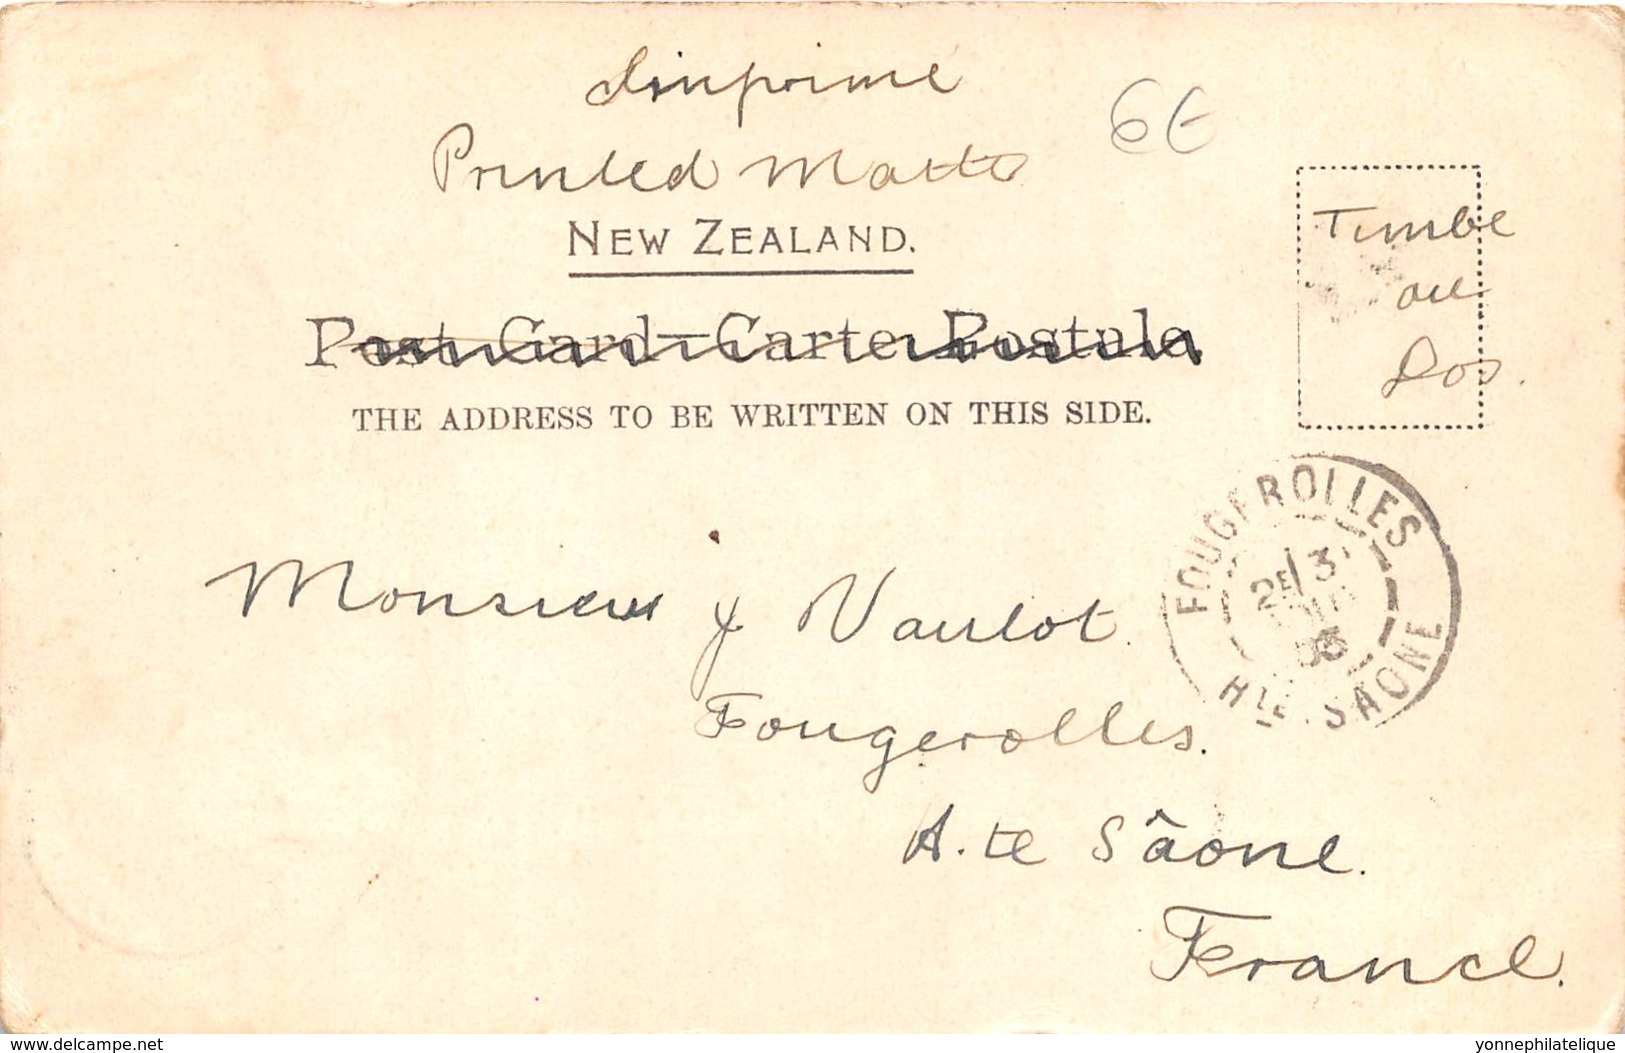 Imprimé
Printed Matter
6€
NEW ZEALAND.
Post Card—Carte Postale
THE ADDRESS TO BE WRITTEN ON THIS SIDE.
Timbe
au
Dos.
FOUGEROLLES
2E 3
03
HTE SAONE
Monsieur J Vaulot.
Fougerolles.
H.te Sâone.
France.
www.delcampe.net
yonnephilatelique